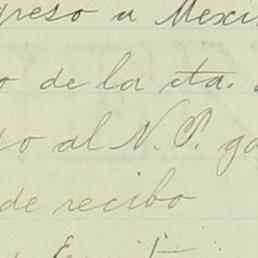 greso a Mexi
o de la cta.
do al N. P. ga
de recibo